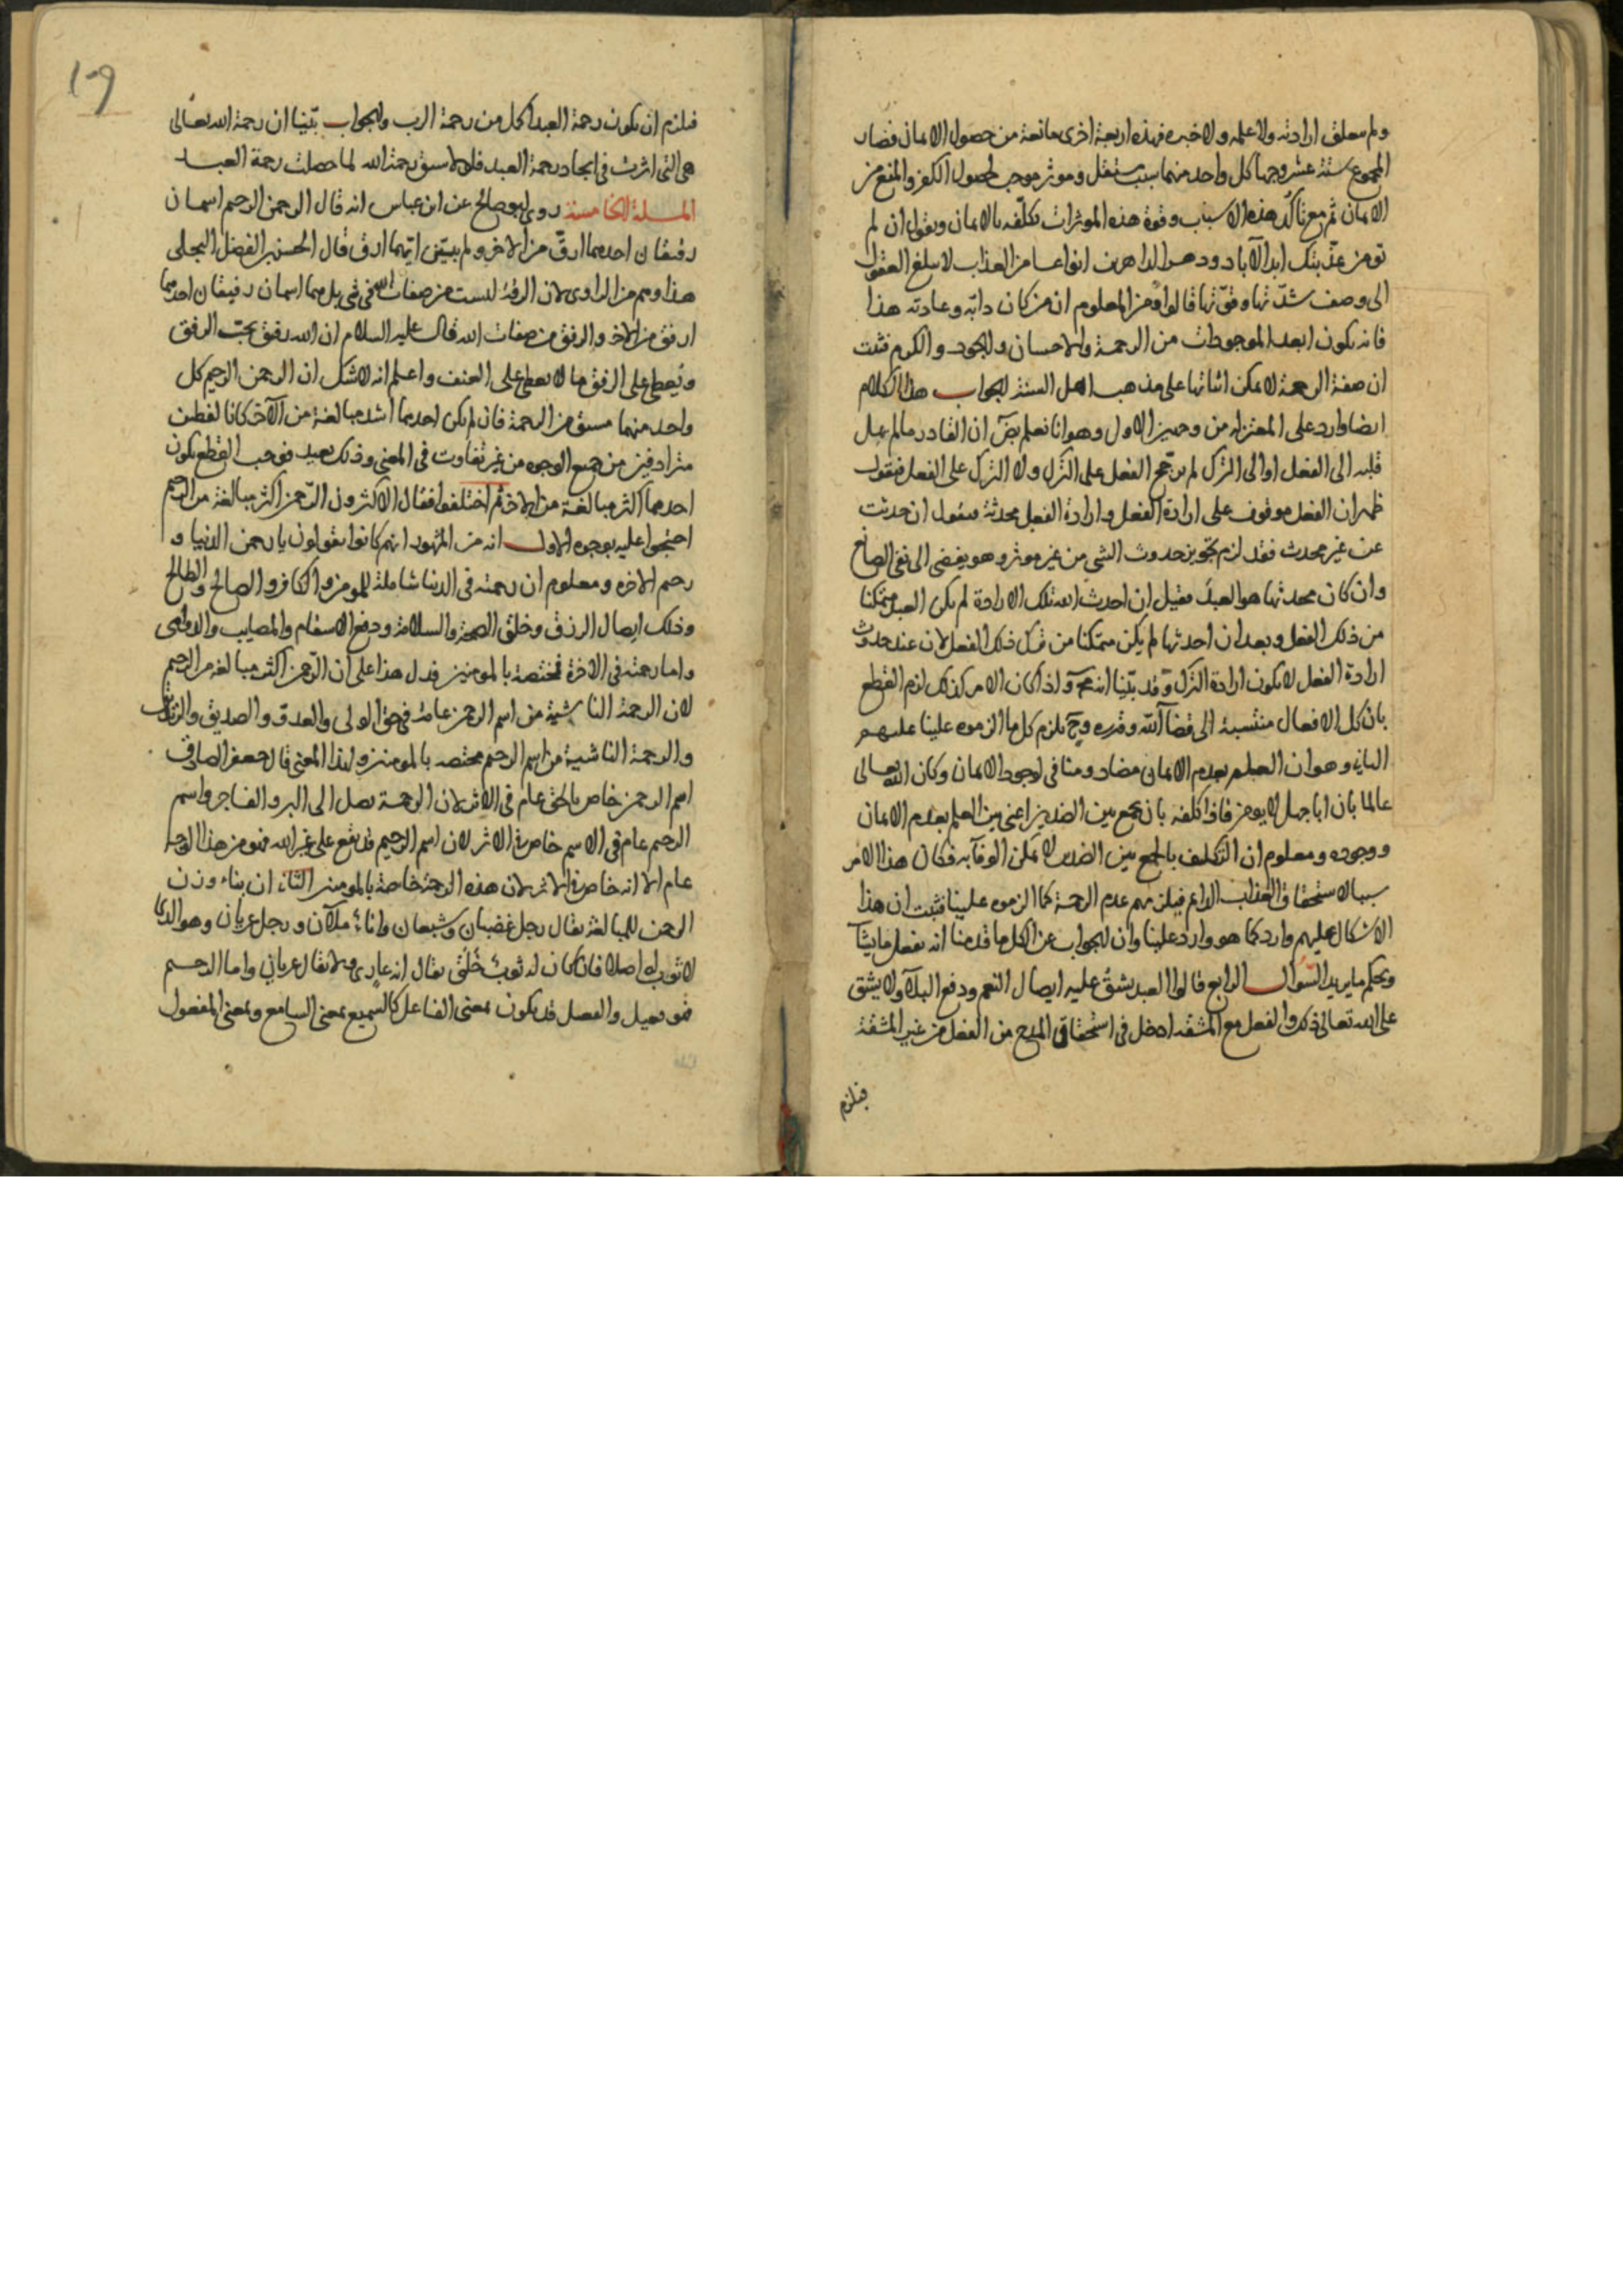 ولم تتعلق ارادته ولا علمه ولا خبره فهذه اربعة اخرى مانعة من حصول الايمان فصار
المجموع ستة عشر وجها كل واحد منها سبب مستقل وموثر موجب لحصول الكفر والمنع من
الايمان ثم مع تاكد هذه الاسباب وقوة هذه الموثرات تكلفه بالايمان ويقول ان لم
تومن عذبتك ابد الآباد ودهر الداهرين انواعا من العذاب لا يبلغ العقول
الى وصف شدتها وقوتها قالوا ومن المعلوم ان من كان دابه وعادته هذا
فانه يكون ابعد الموجودات من الرحمة والاحسان والجود والكرم فثبت
ان صفة الرحمة لا يمكن اثباتها على مذهب اهل السنة الجواب هذا الكلام
ايضا وارد على المعتزلة من وجهين الاول وهو انا نعلم ان القادر ما لم يمل
قلبه الى الفعل او الى الترك لم يرجح الفعل على الترك ولا الترك على الفعل فنقول
ظهر ان الفعل موقوف على ارادة الفعل وارادة الفعل محدثة فنقول ان حدثت
عن غير محدث فقد لزم تجويز حدوث الشي من غير موثر وهو يفضي الى نفي الصانع
وان كان محدثها هو العبد فقبل ان احدث العبد تلك الارادة لم يكن العبد متمكنا
من ذلك الفعل وبعد ان احدثها لم يكن متمكنا من ترك ذلك الفعل لان عند حدوث
ارادة الفعل لا يكون ارادة الترك وقد بينا انه مح واذا كان الامر كذلك لزم القطع
بان كل الافعال منتسبة الى قضآ الله وقدره وح يلزم كل ما الزموه علينا عليهم
الثاني وهو ان العلم بعدم الايمان مضاد ومنافي لوجود الايمان وكان الله تعالى
عالما بان ابا جهل لا يومن فاذا كلفه بان يجمع بين الضدين اعني بين العلم بعدم الايمان
ووجوده ومعلوم ان التكليف بالجمع بين الضدين لا يمكن الوفآ به فكان هذا الامر
سببا لاستحقاق العذاب الدائم فيلزمهم عدم الرحمة كما الزموه علينا فثبت ان هذا
الاشكال عليهم وارد كما هو وارد علينا وان الجواب عن الكل ما قدمنا انه يفعل ما يشآ
ويحكم ما يريد السوال الرابع قالوا العبد يشق عليه ايصال النعم ودفع البلآ ولا يشق
على الله تعالى ذلك والفعل مع المشقة ادخل في استحقاق المدح من الفعل من غير المشقة
فيلزم
109
فيلزم ان يكون رحمة العبد اكمل من رحمة الرب والجواب بينا ان رحمة الله تعالى
هي التي اثرت في ايجاد رحمة العبد فلولا سبق رحمة الله لما حصلت رحمة العبد
المسلة الخامسة روى ابو صالح عن ابن عباس انه قال الرحمن الرحيم اسمان
رقيقان احدهما ارق من الاخر ولم يبين ايهما ارق قال الحسن بن الفضل البجلي
هذا وهم من الراوي لان الرقة ليست من صفات الله في شي بل هما اسمان رفيقان احدهما
ارفق من الاخر والرفق من صفات الله قال عليه السلام ان الله رفيق يحب الرفق
ويعطي على الرفق ما لا يعطي على العنف واعلم انه لا شك ان الرحمن الرحيم كل
واحد منهما مشتق من الرحمة فان لم يكن احدهما اشد مبالغة من الآخر كانا لفظين
مترادفين من جميع الوجوه من غير تفاوت في المعنى وذلك بعيد فوجب القطع بكون
احدهما اكثر مبالغة من الاخر ثم اختلفوا فقال الاكثرون الرحمن اكثر مبالغة من الرحيم
احتجوا عليه بوجوه الاول انه من المشهور انهم كانوا يقولون يا رحمن الدنيا و
رحيم الاخرة ومعلوم ان رحمته في الدنيا شاملة للمومن والكافر والصالح والطالح
وذلك ايصال الرزق وخلق الصحة والسلامة ودفع الاسقام والمصايب والدواهي
واما رحمته في الاخرة فمختصة بالمومنين فدل هذا على ان الرحمن اكثر مبالغة من الرحيم
لان الرحمة الناشية من اسم الرحمن عامة في حق الولي والعدو والصديق والزنديق
والرحمة الناشية من اسم الرحيم مختصه بالمومنين ولهذا المعنى قال جعفر الصادق
اسم الرحمن خاص بالحق عام في الاثر لان الرحمة تصل الى البر والفاجر واسم
الرحيم عام في الاسم خاص في الاثر لان اسم الرحيم قد يقع على غير الله فهو من هذا الوجه
عام الا انه خاص في الاثر لان هذه الرحمة خاصة بالمومنين الثاني ان بناء وزن
الرحمن للمبالغة يقال رجل غضبان وشبعان واناء ملآن ورجل عريان وهو الذي
لا ثوب له اصلا فان كان له ثوب خلق يقال انه عاري ولا يقال عريان واما الرحيم
فهو فعيل والفعيل قد يكون بمعنى الفاعل كالسميع بمعنى السامع وبمعنى المفعول